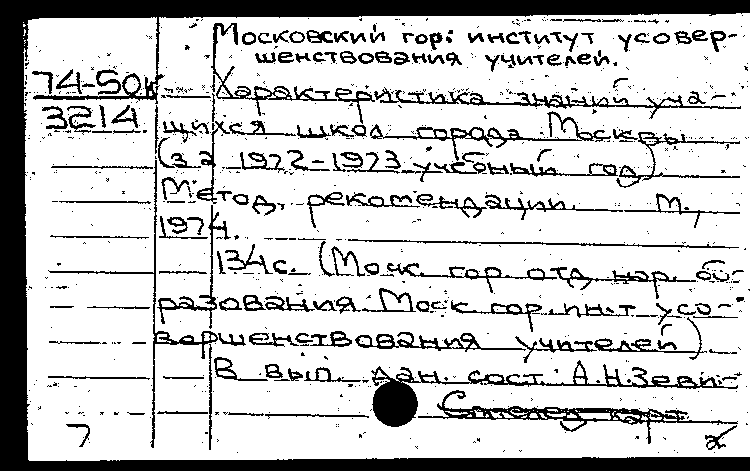 Московский гор: институт усовер-
шенствования учителей.
74-50к Характеристика знаний уча-
3214. щихся школ города Москвы
(за 1972-1973 учебный год)
Метод. рекомендации. М.,
1974.
134с. (Моск. гор. отд. нар. об-
разования. Моск. гор. ин-т усо-
вершенствования учителей)
В вып. дан. сост. А.Н.Зеви-
7